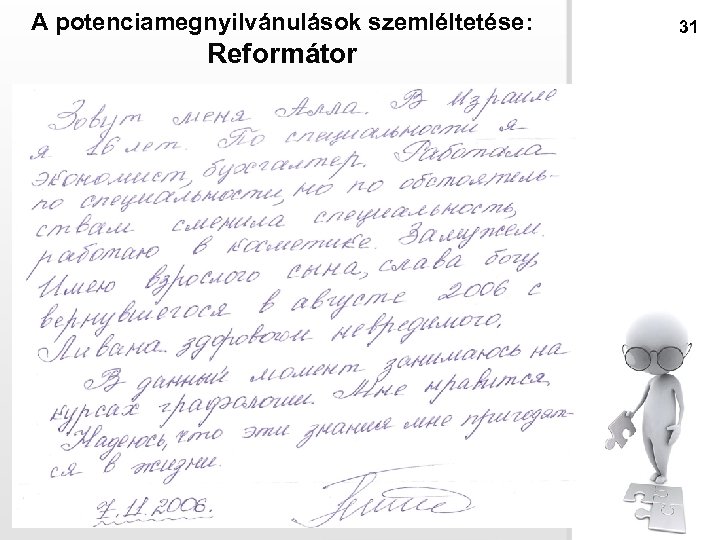 A potenciamegnyilvánulások szemléltetése:
Reformátor
31
Зовут меня Алла. В Израиле
я 16 лет. По специальности я -
экономист, бухгалтер. Работала
по специальности, но по обстоятель-
ствам сменила специальность,
работаю в косметике. Замужем.
Имею взрослого сына, слава богу,
вернувшегося в августе 2006 с
Ливана здоровым невредимого.
В данный момент занимаюсь на
курсах графологии. Мне нравится,
Надеюсь, что эти знания мне пригодят-
ся в жизни.
7.11.2006.